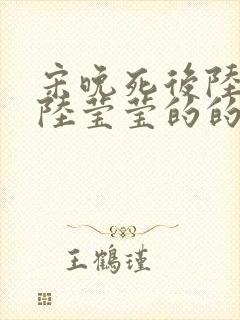 宋晚死後陸
陸莹莹的的
王鶴瑾